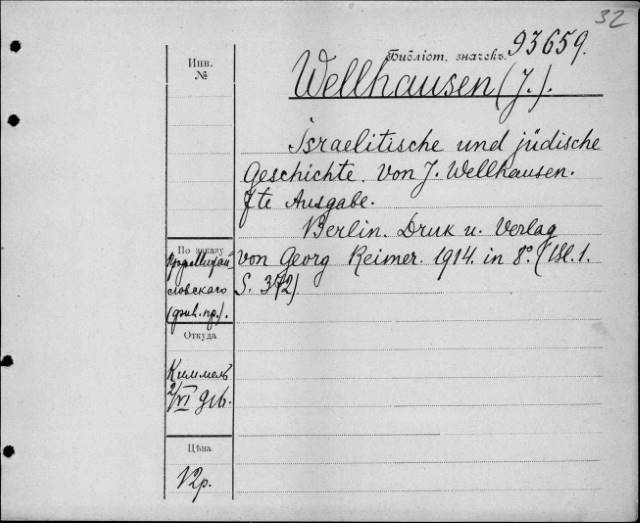 32
Библіот. значекъ 93659.
Wellhausen (J.).
Israelitische und jüdische
Geschichte. Von J. Wellhausen.
7te Ausgabe.
Berlin. Druk u. Verlag
von Georg Reimer. 1914. in 8°. (Bl. 1.
S. 372)
Инв.
№
По заказу
словскаго
Откуда
Киммель
2/VI 916.
Цѣна
12р.